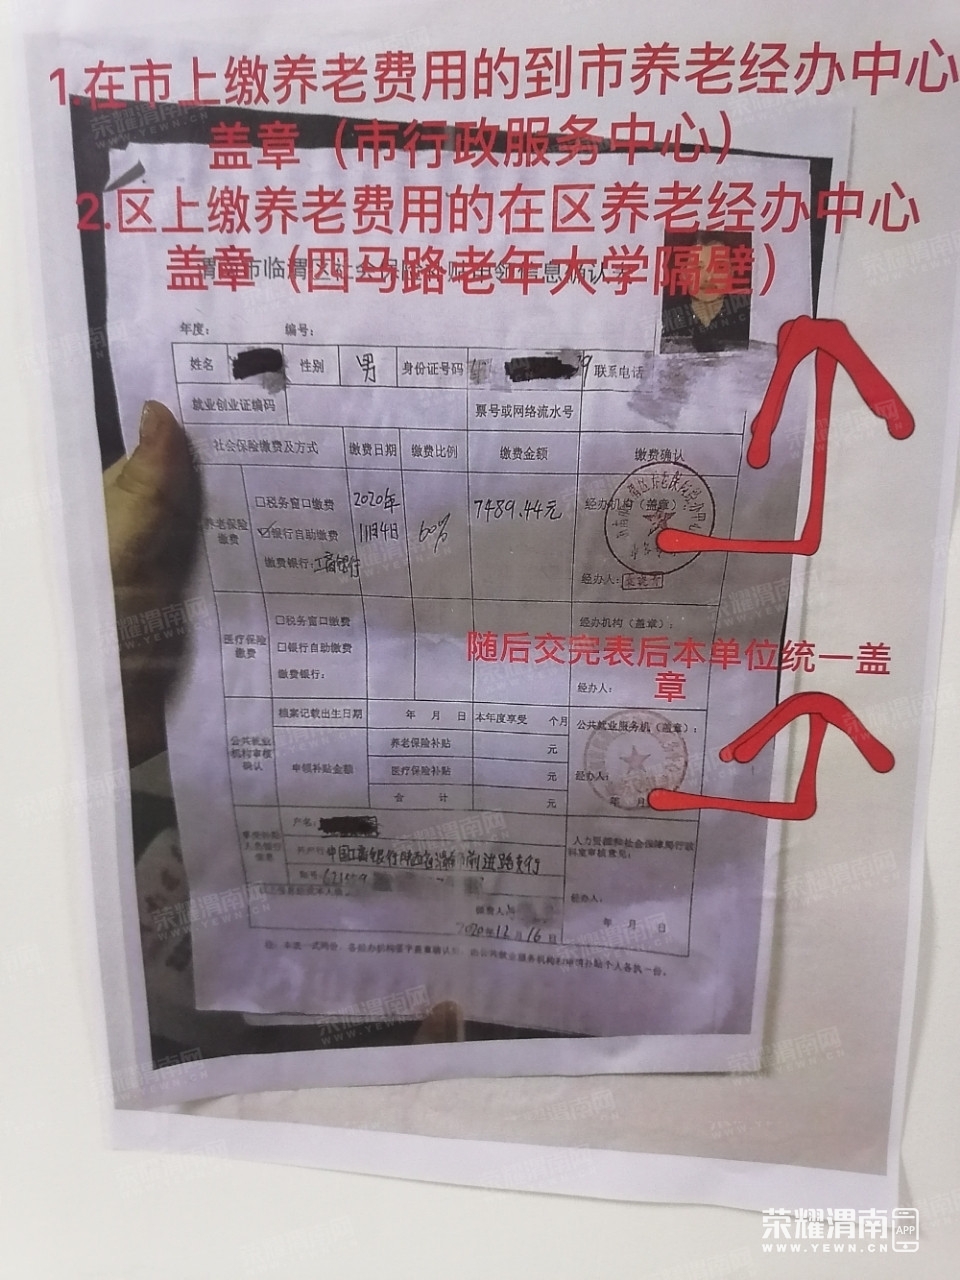 1.在市上缴养老费用的到市养老经办中心
盖章（市行政服务中心）
2.区上缴养老费用的在区养老经办中心
盖章（四马路老年大学隔壁）
年度： 编号：
姓名 性别 男 身份证号码 联系电话
就业创业证编码 票号或网络流水号
社会保险缴费及方式 缴费日期 缴费比例 缴费金额 缴费确认
养老保险缴费
口税务窗口缴费 2020年 7489.44元 经办机构（盖章）：
银行自助缴费 11月4日 60%
缴费银行：工商银行 经办人：
医疗保险缴费
口税务窗口缴费 经办机构（盖章）：
口银行自助缴费
缴费银行： 经办人：
随后交完表后本单位统一盖
章
公共就业机构审核确认
档案记载出生日期 年 月 日 本年度享受 个月 公共就业服务机（盖章）：
申领补贴金额 养老保险补贴 元
医疗保险补贴 元 经办人：
合 计 元 年 月
户名： 人力资源和社会保障局行政
科室审核意见：
中国工商银行陕西省渭南市前进路支行
账号： 经办人：
年 月 日
2020年12月16日
荣耀渭南网
WWW.YEWN.CN
荣耀渭南 APP
WWW.YEWN.CN